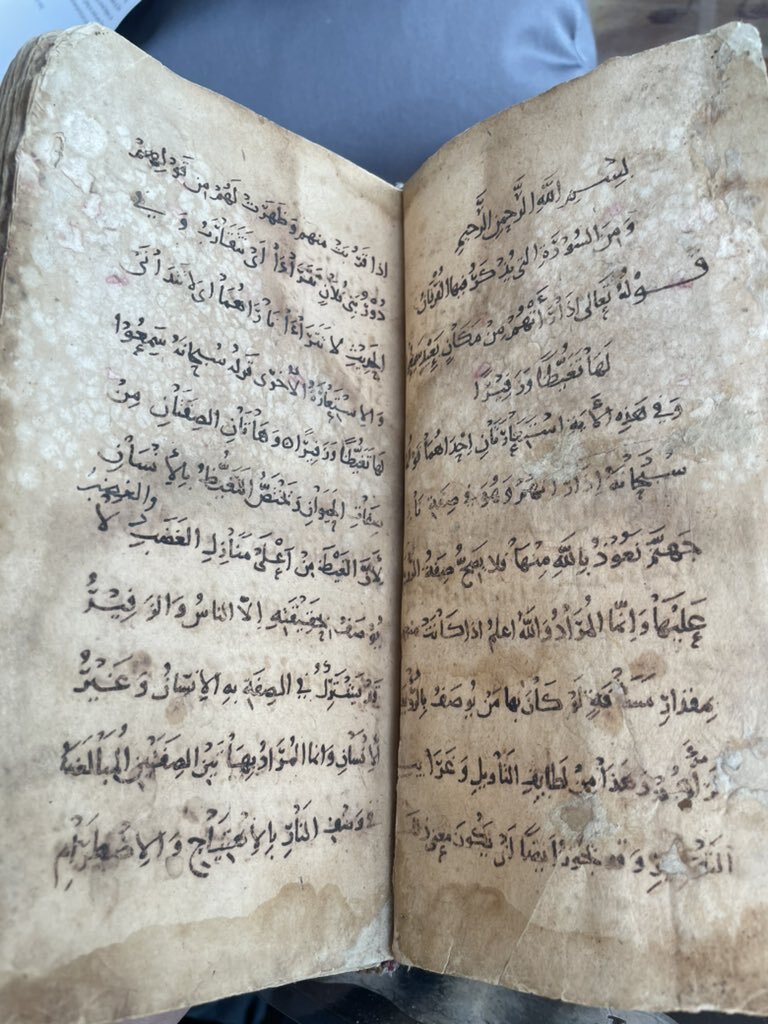 بسم الله الرحمن الرحيم
ومن السورة التي يذكر فيها الفرقان
قوله تعالى اذا رأتهم من مكان بعيد سمعوا
لها تغيظا وزفيرا
وفي هذه الآية استعارتان احداهما قوله
سبحانه اذا رأتهم وهو في صفة نار
جهنم نعوذ بالله منها ولا يصح صفة الرؤية
عليها وانما المراد والله اعلم اذا كانت منهم
بمقدار مسافة لو كان بها من يوصف بالرؤية
لرآهم وهذا من لطايف التأويل وغرايب
التفسير وقد يجوز ايضا ان يكون معنى ذلك
اذا قربت منهم وظهرت لهم من قولهم
دور بني فلان تتراءا اى تتقارب وفي
الحديث لا تتراءا ناراهما اى لا تتدانى
والاستعارة الاخرى قوله سبحانه سمعوا
لها تغيظا وزفيرا وهاتان الصفتان من
صفات الحيوان ويختص التغيظ بالإنسان
لان الغيظ من أعلى منازل الغضب والغضب لا
يوصف بحقيقته الا الناس والزفير
قد يشترك في الصفة به الانسان وغير
الانسان وانما المراد بهاتين الصفتين المبالغة
في وصف النار بالاهتياج والاضطرام